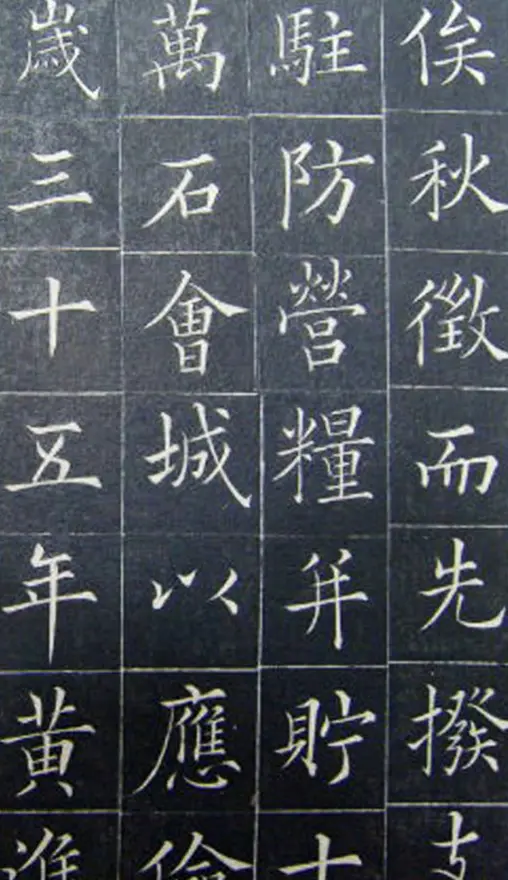 俟秋徵而先撥支
駐防營糧并貯十
萬石會城以應
歲三十五年黃淮